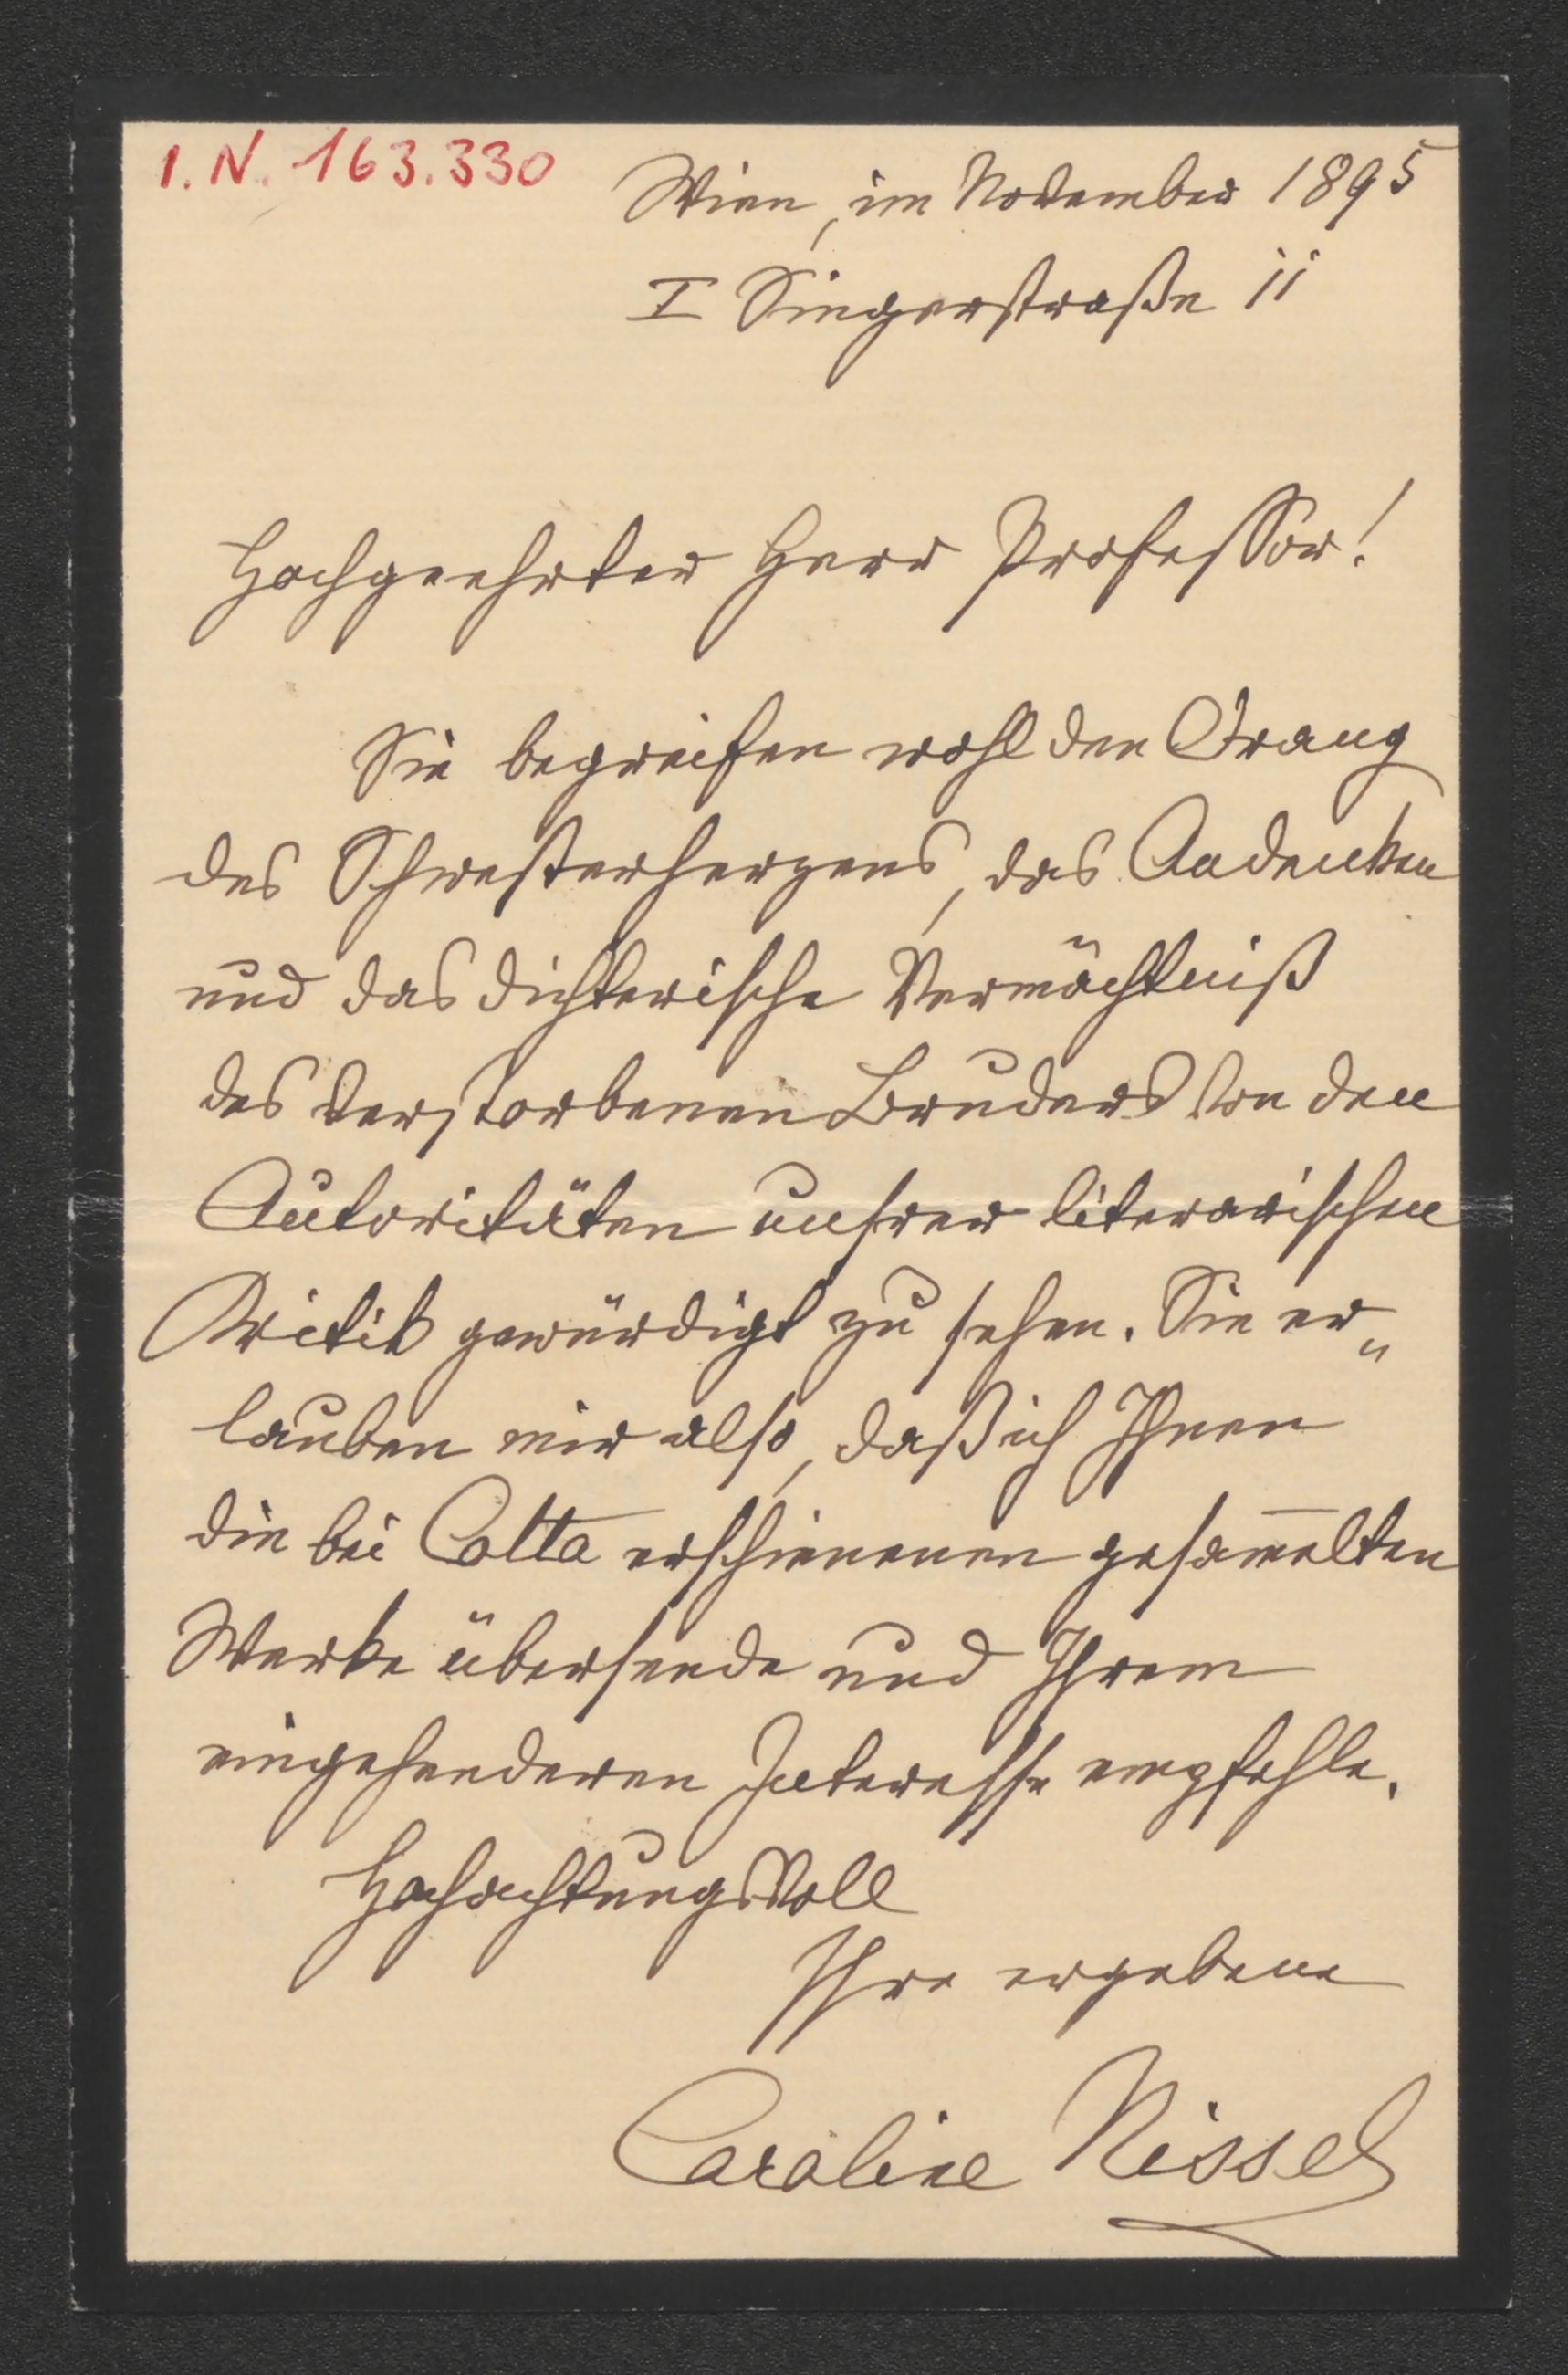 I. N. 163.330
Wien, im November 1895
I Singerstraße 11
Hochgeehrter Herr Professor!
Sie begreifen wohl den Drang
des Schwesterherzens, das Andenken
und das dichterische Vermächtniß
des verstorbenen Bruders von den
Autoritäten unsrer literarischen
Kritik gewürdigt zu sehen. Sie er„
lauben mir also, daß ich Ihnen
die bei Cotta erschienenen gesam̅elten
Werke übersende und Ihrem
eingehenderen Interesse empfehle.
Hochachtungsvoll
Ihre ergebene
Caroline Nissel